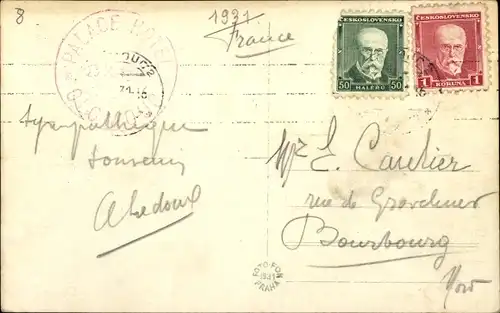 8
1931
France
PALACE HOTEL
ČESKOSLOVENSKO
50 50
HALÉŘŮ
ČESKOSLOVENSKO
1 1
KORUNA
Sympathique
souvenir
E. Cautier
rue de
Bourbourg
Nord
FOTO-FON
1931
PRAHA